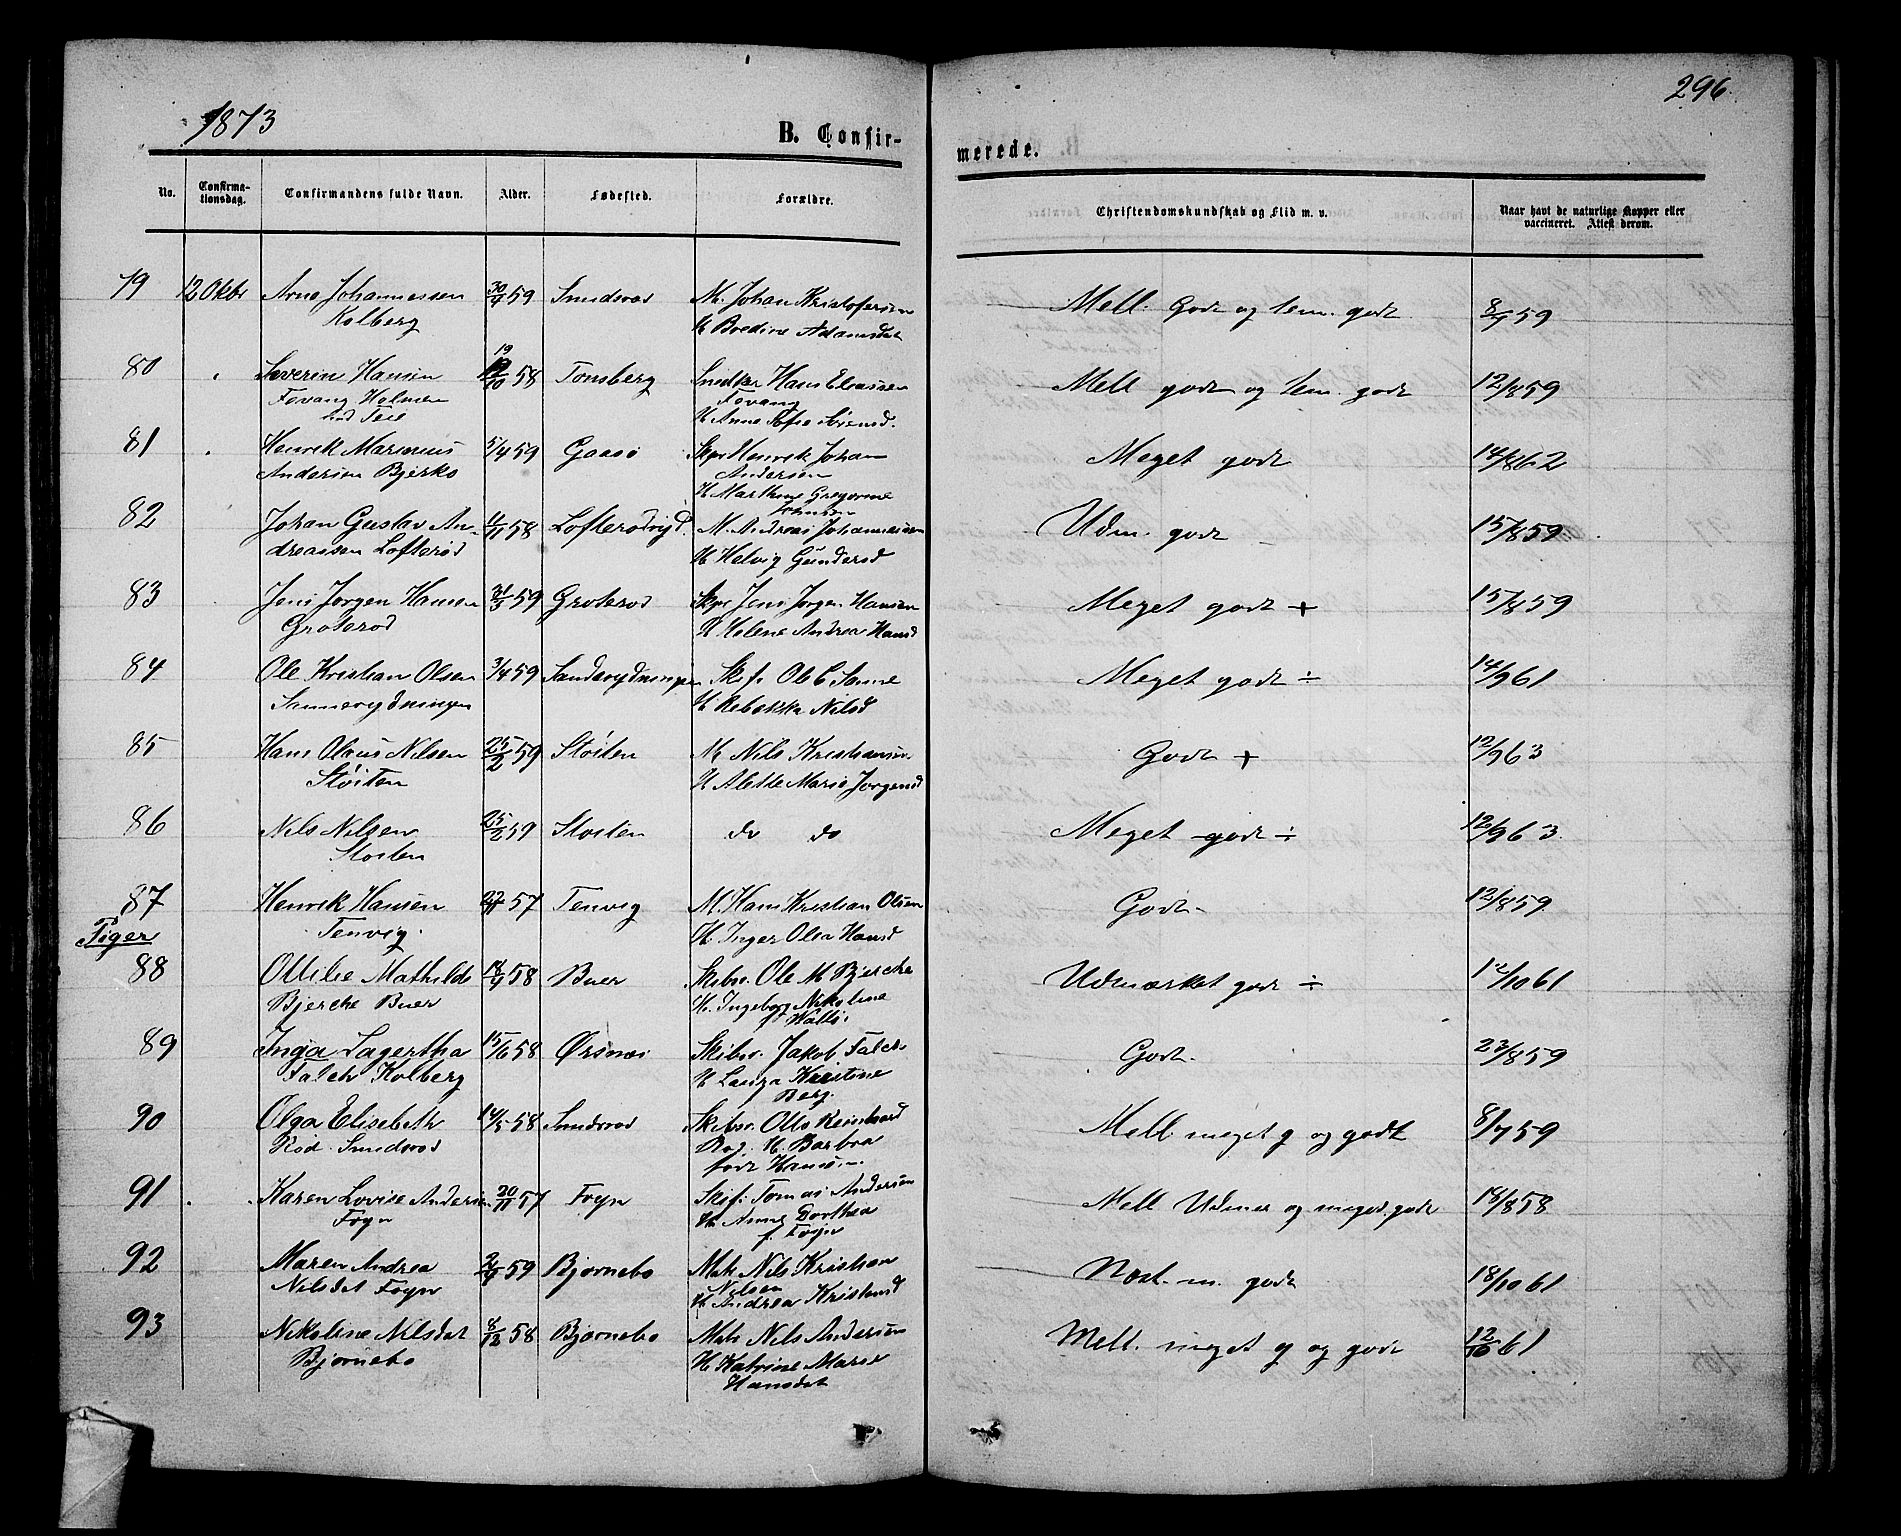 1873
296
B. Confir-
merede.
No.
Confirma-
tionsdag.
Confirmandens fulde Navn.
Alder.
Fødested.
Forældre.
Christendomskundskab og Flid m. v.
Naar havt de naturlige Kopper eller
vaccineret. Attest derom.
79 12 Oktbr Arne Johannessen 30/9 59 Smidsrød M. Johan Kristofersen Mell. Godt og tem. godt 8/7 59
Kolberg H. Bredine Adamsdat
80 Severin Hansen 19/10 58 Tønsberg Snedker Hans Eliassen Mell godt og tem. godt 12/8 59
Fevang Holmen Fevang
ved Teie H. Anne Sofie Sørensd.
81 Henrik Marinius 5/4 59 Gaasø Skpr Henrik Johan Meget godt 14/8 62
Andersen Bjerkø Andersen
H. Marthine Gregorine
82 Johan Gustav An- 58 Lofterødryd. M. Andreas Johannessen Udm. godt 15/8 59
dreassen Lofterød H. Helvig Gundersd
83 Jens Jørgen Hansen 31/3 59 Grøterød Skpr Jens Jørgen Hansen Meget godt + 15/8 59
Grøterød H. Helene Andrea Hansd
84 Ole Kristian Olsen 3/4 59 Sanderydningen Skif. Ole C Sanne Meget godt ÷ 14/9 61
Sannerydningen H. Rebekka Nilsd
85 Hans Olaus Nilsen 25/2 59 Støiten M Nils Kristiansen Godt + 12/9 63
Støiten H. Alette Marie Jørgensd
86 Nils Nilsen 25/2 59 Støiten do do Meget godt ÷ 12/9 63
Støiten
87 Henrik Hansen 57 Tenvig M. Hans Kristian Olsen Godt 12/8 59
Tenvig. H. Inger Olea Hansd
Piger
88 Ottilie Mathilde 18/9 58 Buer Skibsr. Ole M Bjerche Udmærket godt ÷ 12/10 61
Bjerche Buer H. Ingeborg Nikoline
89 Inga Lagertha 15/6 58 Ørsnæs Skibsr. Jakob Falch Godt. 23/8 59
Falch Kolberg H. Laura Kristine
f. Berg.
90 Olga Elisabeth 14/5 58 Smidsrød Skibsr. Otto Reinhard Mell. meget g og godt 8/7 59
Rød. Smidsrød Rød. H. Barbra
født Hansen
91 Karen Lovise Andersen 20/11 57 Føyn Skif. Tomas Andersen Mell Udmer og meget godt 18/8 58
Føyn H. Anne Dorthea
f. Føyn
92 Maren Andrea 59 Bjørnebo Mat. Nils Kristian Næst. m. godt 18/10 61
Nilsdat Føyn Nilsen
H. Andrea Kristensd
93 Nikoline Nilsdat 8/12 58 Bjørnebo Mat. Nils Andersen Mell. meget g og godt 12/10 61
Bjørnebo H. Katrine Marie
Hansdat